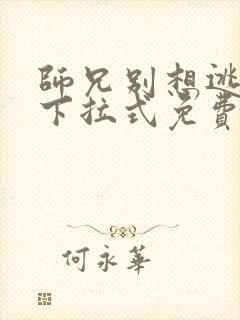 師兄別想逃
下拉式免費
何永華